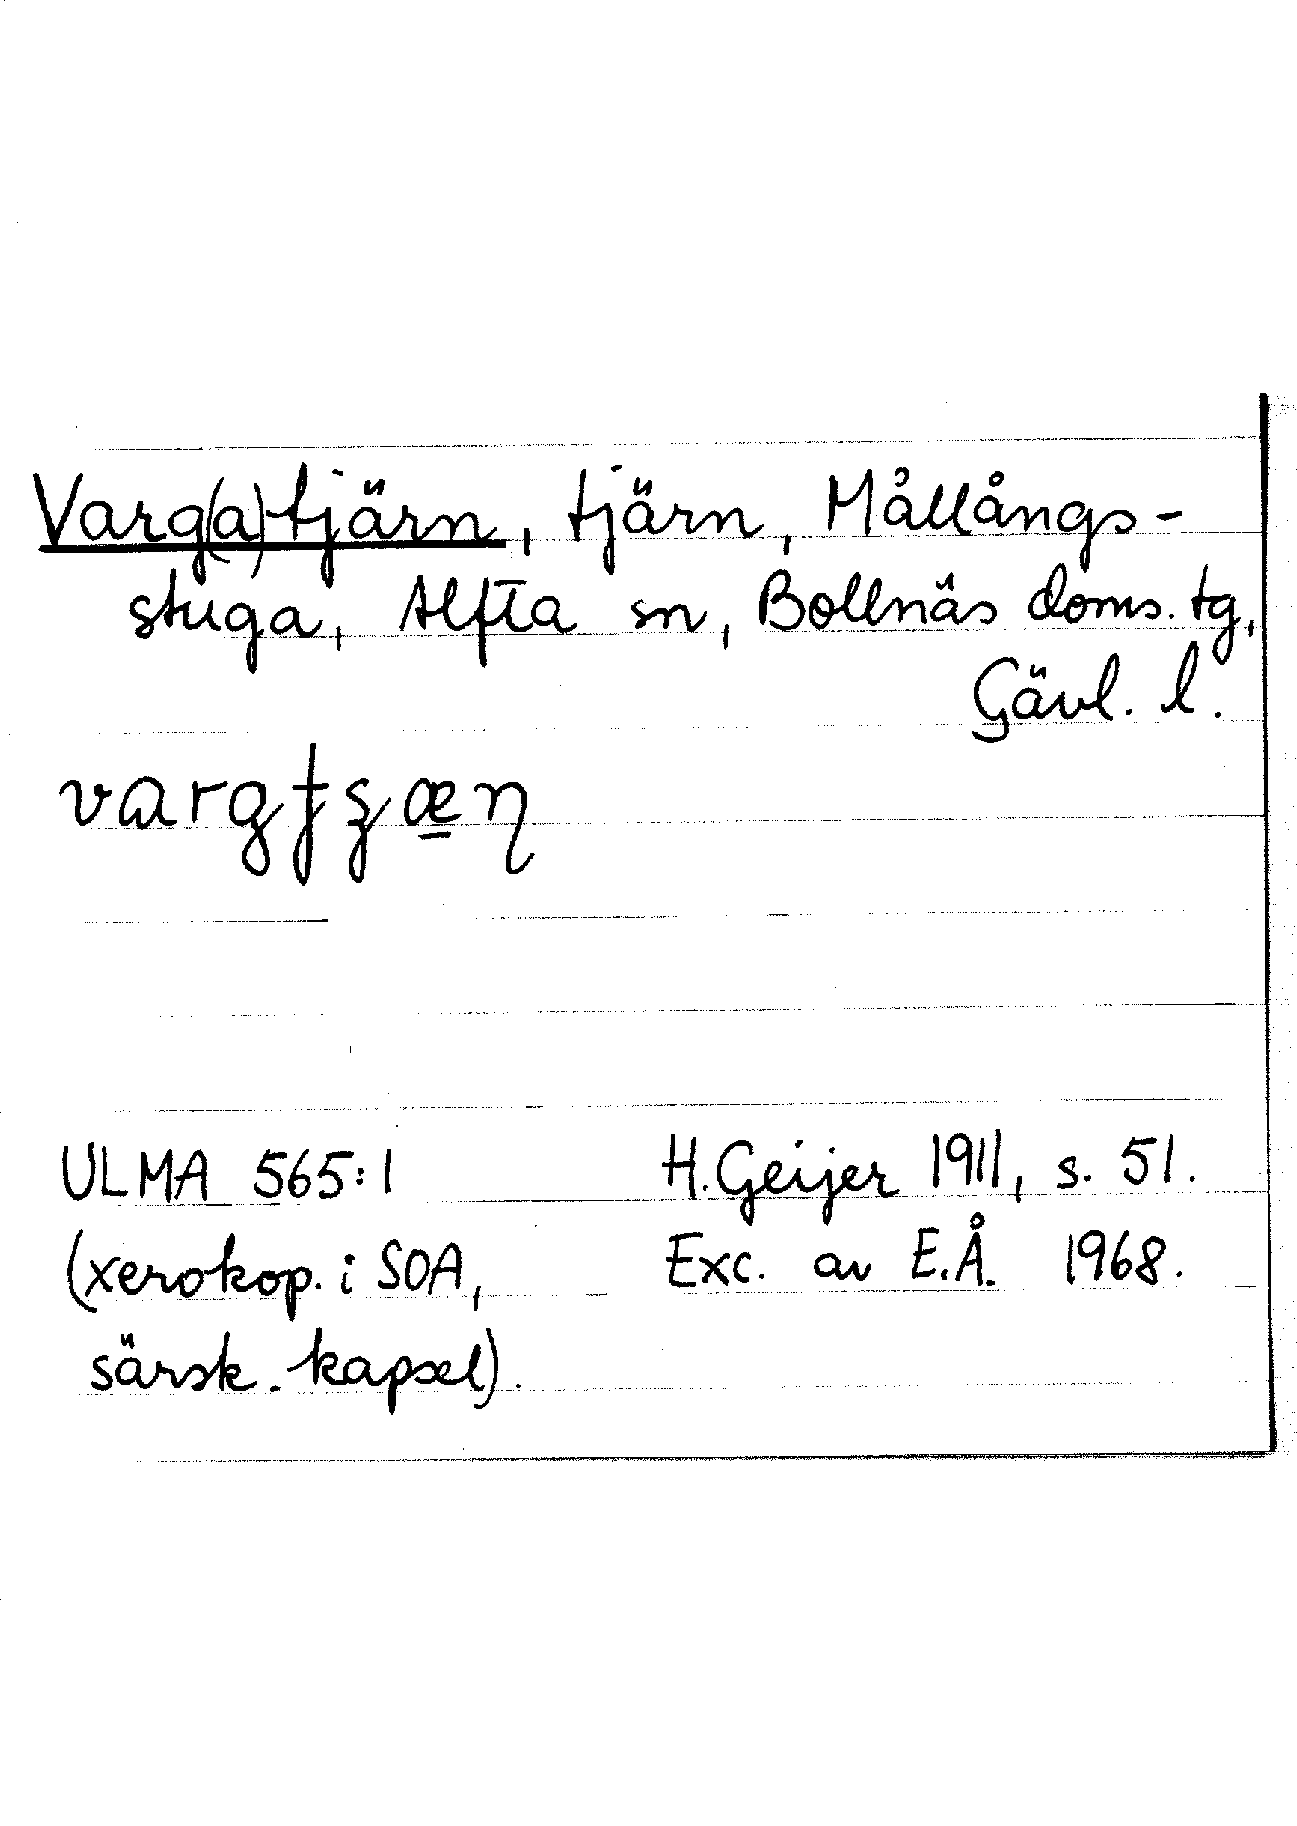 Varg(a)tjärn, tjärn, Mållångs-
stuga, Alfta sn, Bollnäs doms. tg,
Gävl. l.
ULMA 565:1
H. Geijer 1911, s. 51.
(xerokop. i SOA,
Exc. av E.Å. 1968.
särsk. kapsel).